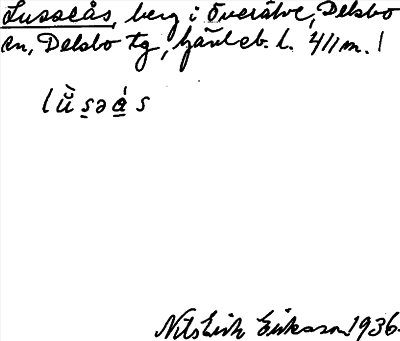 Lusseås, berg i Överälve, Delsbo
sn, Delsbo tg, Gävleb. l. 411 m. !
lǜs̱əá̱s
Nils Erik Eriksson 1936.